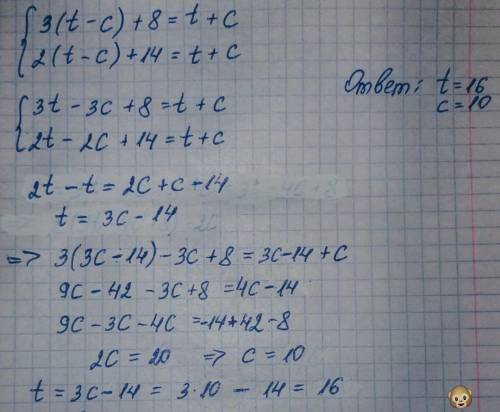 { 3(t - c) + 8 = t + c
{ 2(t - c) + 14 = t + c
Ответ: t = 16
c = 10
{ 3t - 3c + 8 = t + c
{ 2t - 2c + 14 = t + c
2t - t = 2c + c - 14
t = 3c - 14
=> 3(3c - 14) - 3c + 8 = 3c - 14 + c
9c - 42 - 3c + 8 = 4c - 14
9c - 3c - 4c = -14 + 42 - 8
2c = 20 => c = 10
t = 3c - 14 = 3·10 - 14 = 16